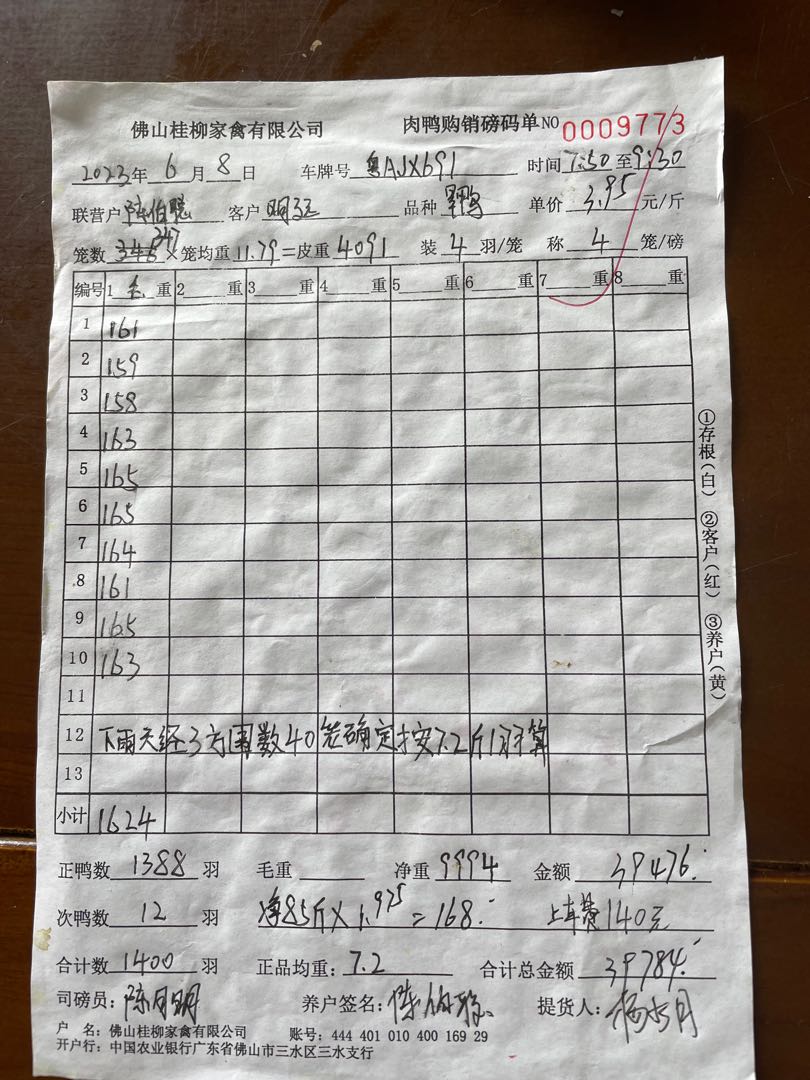 佛山桂柳家禽有限公司 肉鸭购销磅码单 NO 0009773
2023年 6 月 8 日 车牌号 粤AJX691 时间 7:50 至 9:30
联营户 陈伯聪 客户 明记 品种 单价 3.95 元/斤
笼数 348 347 × 笼均重 11.79 = 皮重 4091 装 4 羽/笼 称 4 笼/磅
编号 1 毛 重 2 重 3 重 4 重 5 重 6 重 7 重 8 重
1 161
2 159
3 158
4 163
5 165
6 165
7 164
8 161
9 165
10 163
11
12 下雨天经3方同数40笼确定按7.2斤1羽算
13
小计 1624
①存根(白) ②客户(红) ③养户(黄)
正鸭数 1388 羽 毛重 净重 9994 金额 39476.
次鸭数 12 羽 净85斤×1.975=168. 上车费140元
合计数 1400 羽 正品均重: 7.2 合计总金额 39784.
司磅员: 陈月明 养户签名: 提货人:
户 名: 佛山桂柳家禽有限公司 账号: 444 401 010 400 169 29
开户行: 中国农业银行广东省佛山市三水区三水支行